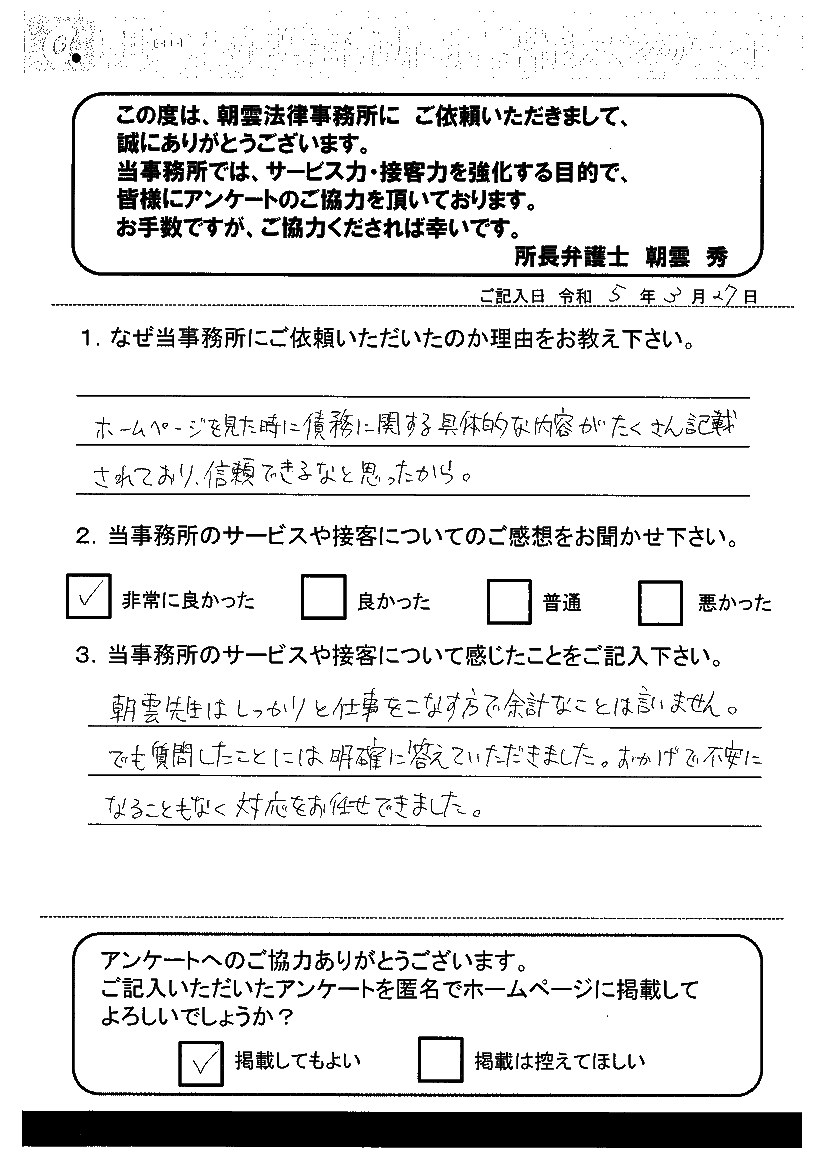 この度は、朝雲法律事務所に ご依頼いただきまして、
誠にありがとうございます。
当事務所では、サービス力・接客力を強化する目的で、
皆様にアンケートのご協力を頂いております。
お手数ですが、ご協力くだされば幸いです。
所長弁護士 朝雲 秀
ご記入日 令和 5 年 3 月 27 日
1. なぜ当事務所にご依頼いただいたのか理由をお教え下さい。
ホームページを見た時に債務に関する具体的な内容がたくさん記載
されており、信頼できるなと思ったから。
2. 当事務所のサービスや接客についてのご感想をお聞かせ下さい。
✓ 非常に良かった 良かった 普通 悪かった
3. 当事務所のサービスや接客について感じたことをご記入下さい。
朝雲先生はしっかりと仕事をこなす方で余計なことは言いません。
でも質問したことには明確に答えていただきました。おかげで不安に
なることもなく対応をお任せできました。
アンケートへのご協力ありがとうございます。
ご記入いただいたアンケートを匿名でホームページに掲載して
よろしいでしょうか？
✓ 掲載してもよい 掲載は控えてほしい